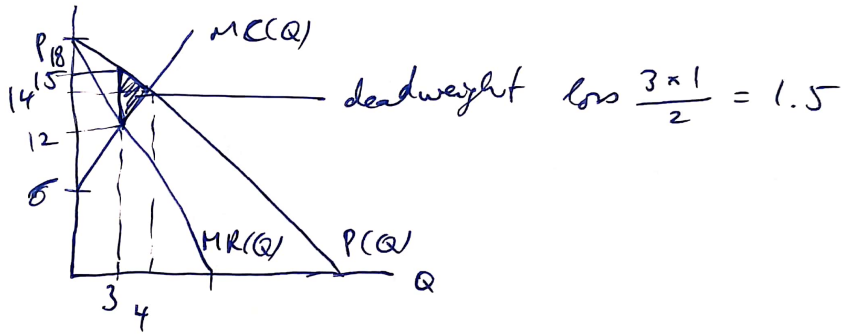 MC(Q)
P
18
15
14
12
6
deadweight loss 3 × 1 / 2 = 1.5
MR(Q)
P(Q)
Q
3
4